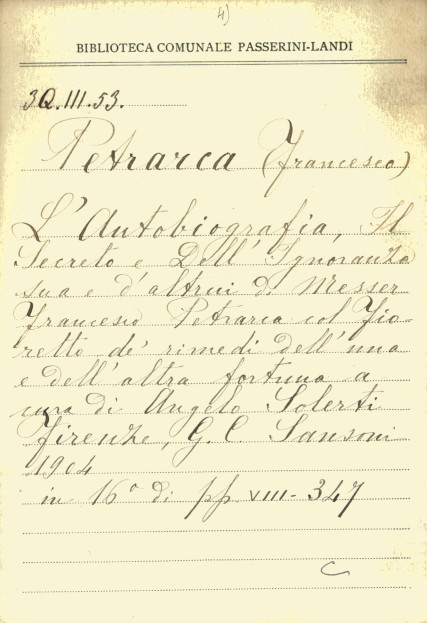 4)
BIBLIOTECA COMUNALE PASSERINI-LANDI
3Q.III.53.
Petrarca (Francesco)
L'Autobiografia, Il
Secreto e Dell'Ignoranza
sua e d'altrui di Messer
Francesco Petrarca col Fio-
retto de' rimedi dell'una
e dell'altra fortuna a
cura di Angelo Solerti
Firenze, G. C. Sansoni
1904
in 16° di pp VIII-347
C